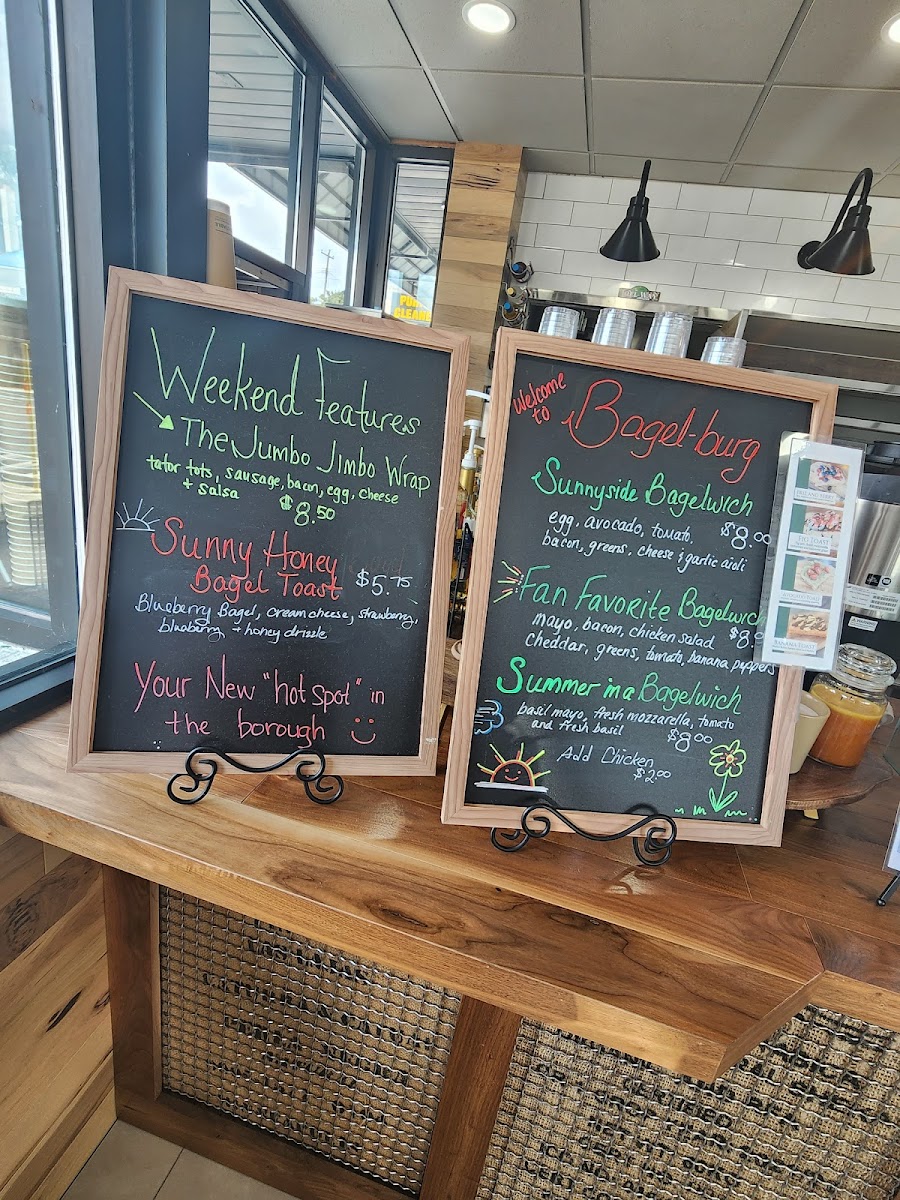 Weekend Features
The Jumbo Jimbo Wrap
tator tots, sausage, bacon, egg, cheese
+ salsa
$8.50
Sunny Honey
Bagel Toast $5.75
Blueberry Bagel, cream cheese, strawberry,
blueberry, + honey drizzle
Your New "hot spot" in
the borough
Welcome
to
Bagel-burg
Sunnyside Bagelwich
egg, avocado, tomato, $8.00
bacon, greens, cheese & garlic aioli
Fan Favorite Bagelwich
mayo, bacon, chicken salad $8.0
cheddar, greens, tomato, banana peppers
Summer in a Bagelwich
basil mayo, fresh mozzarella, tomato
and fresh basil $8.00
Add Chicken
$2.00
FIG TOAST
BANANA TOAST